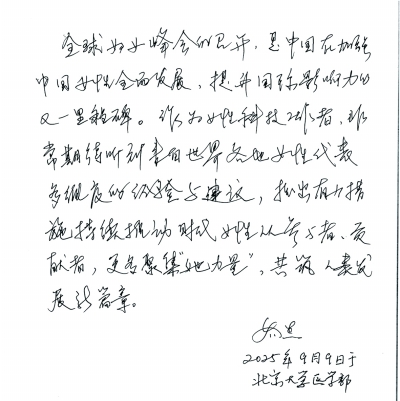 全球妇女峰会的召开，是中国在加强
中国女性全面发展，提升国际影响力的
又一里程碑。我作为女性科技工作者，非
常期待听到来自世界各地女性代表
多维度的经验与建议，拟出有力措
施持续推动时代女性从参与者、贡
献者，更多聚集“她力量”，共筑人类发
展新篇章。
乔杰
2025年9月9日于
北京大学医学部